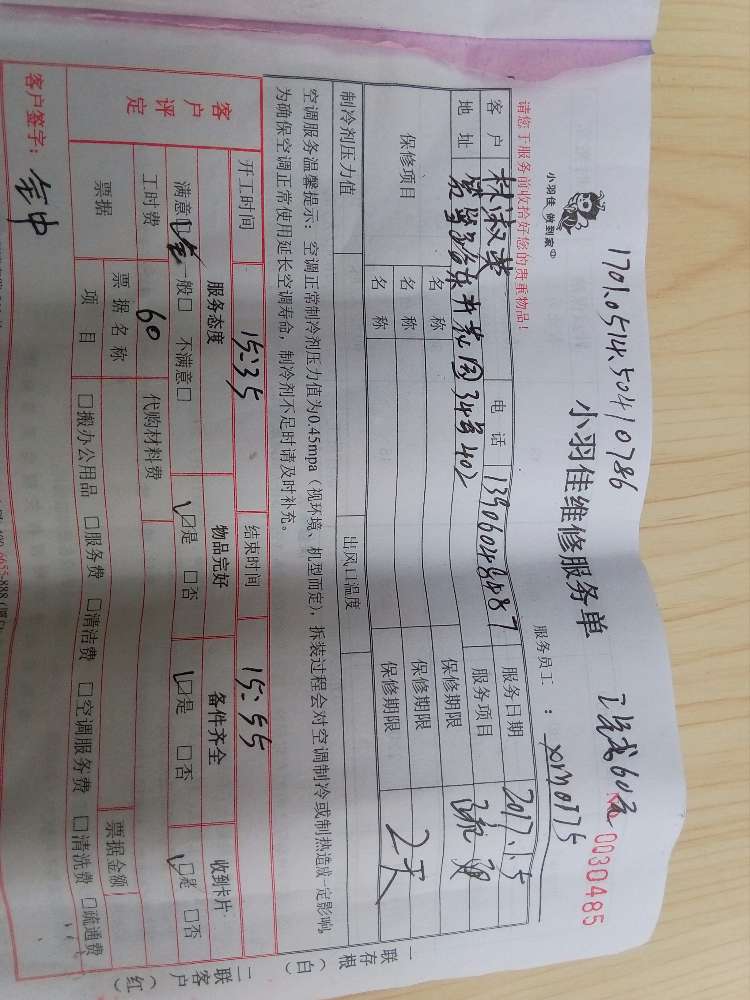 1701051450410786
小羽佳 做到家
小羽佳维修服务单
60元
No 0030485
请您于服务前收拾好您的贵重物品!
服务员工 : XM0175
客户 林淑英 电话 13906048487 服务日期 2017.1.5
地址 34号402 服务项目
保修项目 名称 保修期限
名称 保修期限 2天
名称 保修期限
制冷剂压力值 出风口温度
空调服务温馨提示: 空调正常制冷剂压力值为0.45mpa (视环境、机型而定), 拆装过程会对空调制冷或制热造成一定影响,
为确保空调正常使用延长空调寿命, 制冷剂不足时请及时补充。
开工时间 15:35 结束时间 15:55
客户评定
服务态度 物品完好 备件齐全 收到卡片
满意 一般□ 不满意□ ☑是 □否 ☑是 □否 ☑是 □否
工时费 60 代购材料费
票据 票据名称 票据金额
项目 □搬办公用品 □服务费 □清洁费 □空调服务费 □清洗费 □疏通费
客户签字:
一联存根(白)
二联客户(红)